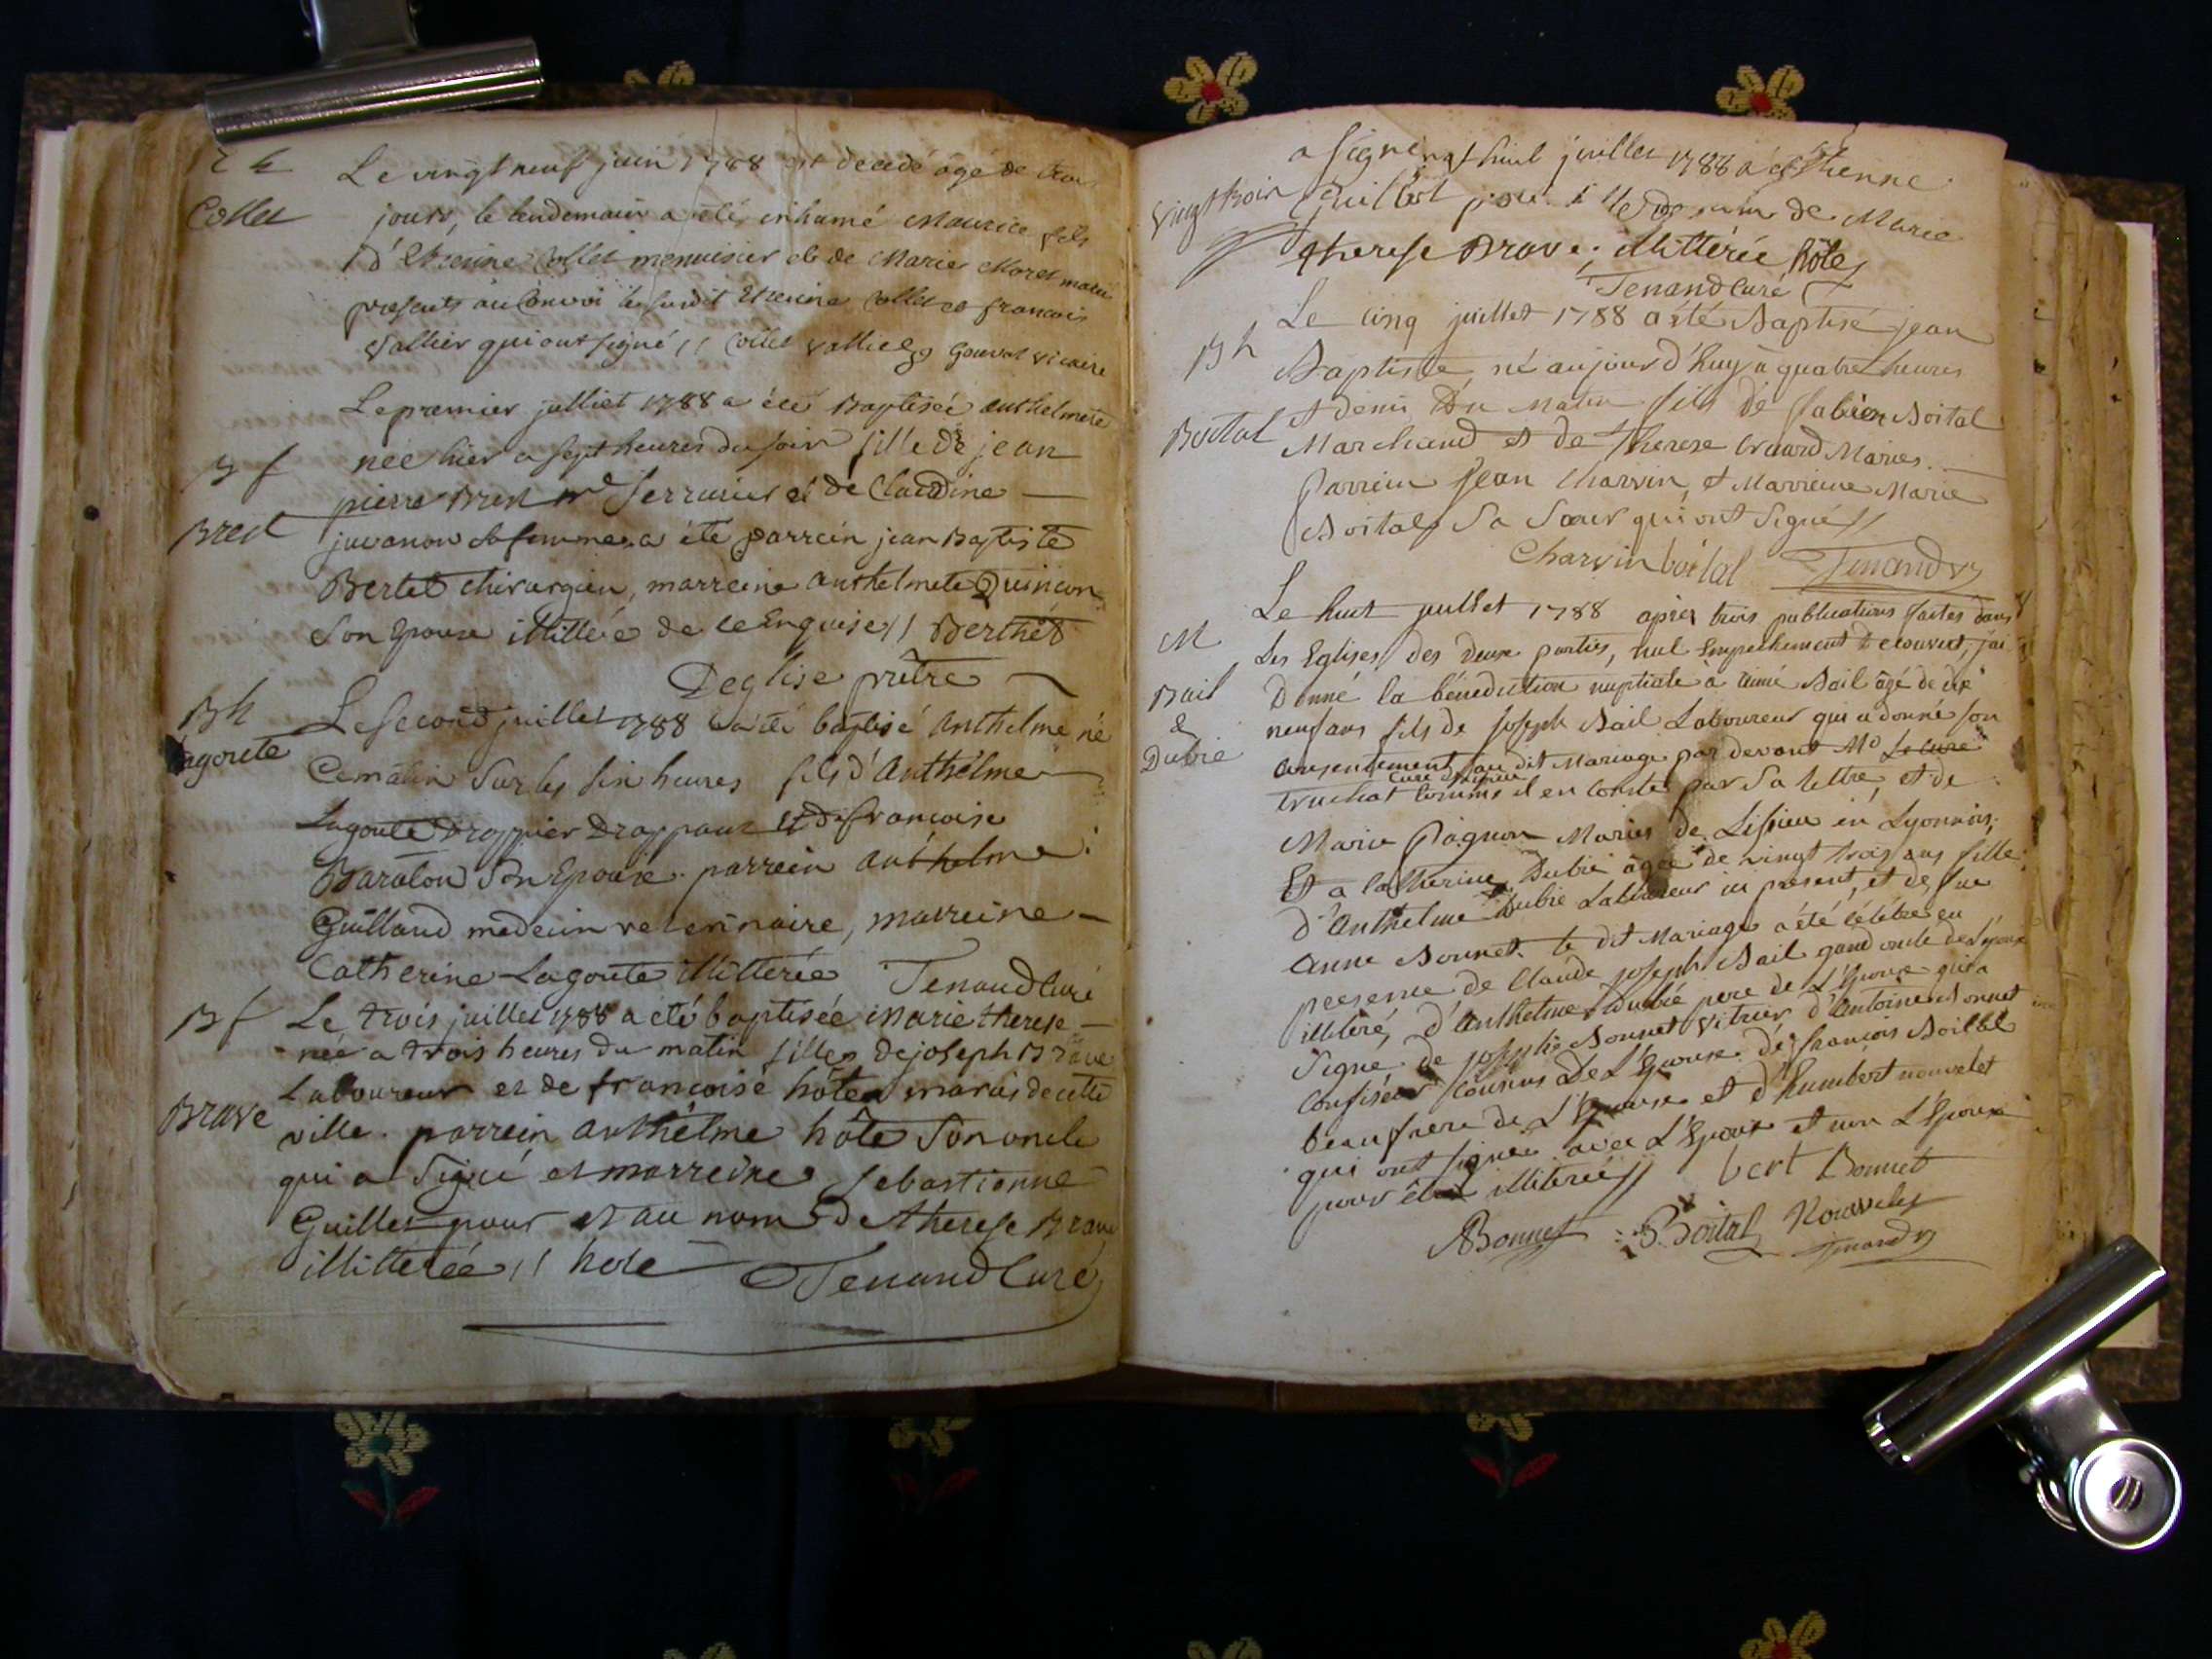 Collet
Le vingt neuf juin 1788 est decedé agé de trois
jours, le lendemain a été inhumé Maurice fils
d'Etienne Collet menuisier et de Marie Moret mariés
presents au Convoi le susdit Etienne Collet et francois
Vallier qui ont signé // Collet Vallier Gouvat vicaire
Bf
Bret
Le premier julliet 1788 a été Baptisée anthelmete
née hier a sept heures du soir fille de jean
pierre Bret me Serrurier et de Claudine
juvanon sa femme, a été parrein jean Baptiste
Bertet chirurgien, marreine anthelmete Quincon
Son Epouse illitterée de ce Enquise // Berthet
Deglise prêtre
Bh
Lagoute
Le Second juillet 1788 a été baptisé Anthelme né
Ce matin Sur les six heures fils d'Anthélme
Lagoute Drappier Drappant et de francoise
Baraton Son Epouse. parrein anthelme
Guilland medecin veterinaire, marreine
Catherine Lagoute illitterée Tenand Curé
Bf
Brave
Le trois juillet 1788 a été baptisée Marie therese
née a trois heures du matin fille de joseph Brave
Laboureur et de francoise hôte mariés de cette
ville. parrein anthélme hôte Son oncle
qui a Signé et marreine Sebastienne
Guillet pour et au nom de therese Brave
illitterée // hote Tenand Curé
a signé
huit juillet 1788 a
Guillot
de Marie
therese Brave; illittérée hôte
Tenand Curé
Bh
Boital
Le cinq juillet 1788 a été Baptisé jean
Baptiste, né aujourd'huy à quatre heures
et demi Du Matin fils de fabien Boital
Marchand et de Therese Mariés.
Parrein Jean Charvin, et Marreine Marie
Boital Sa Soeur qui ont Signé //
Charvin boital Tenand
M
Bail
&
Dubié
Le huit juillet 1788 après trois publications faites dans
Les Eglises des deux parties, nul Empechement decouvert, j'ai
Donné la bénédiction nuptiale à aimé Bail âgé de dix
neuf ans fils de Joseph Bail Laboureur qui a donné son
consentement au dit Mariage par devant Mr Le curé
truchat comme il en conste par Sa lettre, et de
Marie Pagnon Mariés de Lissieu en Lyonnois;
Et a Catherine Dubié âgée de vingt trois ans fille
d'Anthelme Dubié Laboureur ici present, et de feue
Anne Bonnet. le dit Mariage a été célébré en
presence de Claude joseph Bail grand oncle de l'Epoux
illitéré, d'Anthelme Dubié pere de L'Epouse qui a
Signé de joseph Bonnet Vitrier d'Antoine Bonnet
Confiseur Cousins de L'Epouse. de francois Boital
beaufrere de L'Epouse et d'humbert nouvelet
qui ont signé avec L'Epoux et non L'Epouse
pour être illiterée // bert Bonnet
ABonnet Boital Nouvelet
Tenand